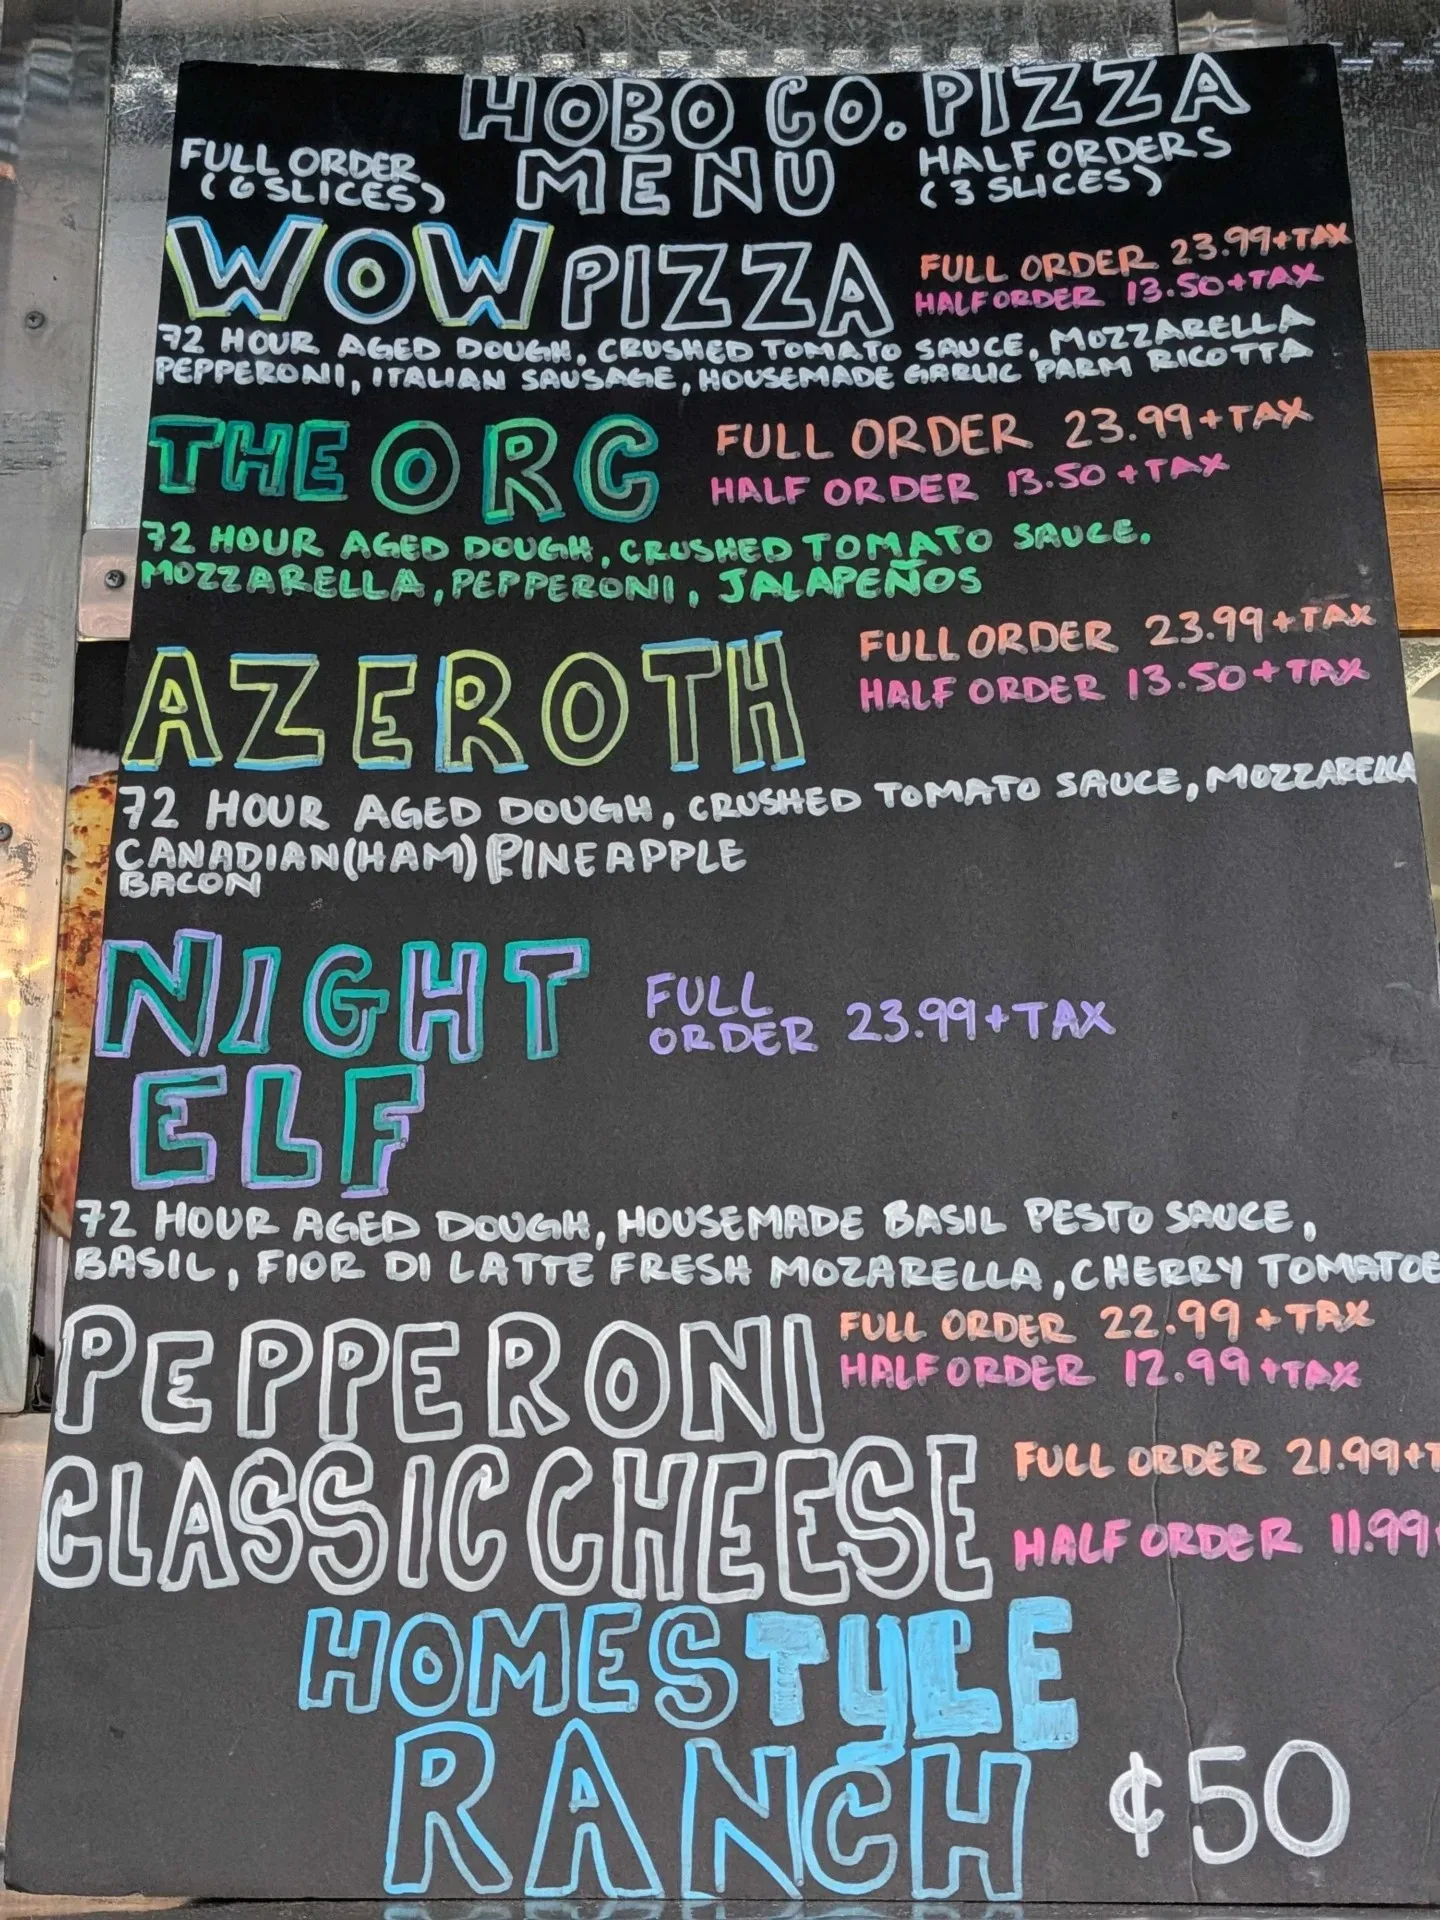 HOBO CO. PIZZA
MENU
FULL ORDER
(6 SLICES)
HALF ORDERS
(3 SLICES)
WOW PIZZA
FULL ORDER 23.99+TAX
HALF ORDER 13.50+TAX
72 HOUR AGED DOUGH, CRUSHED TOMATO SAUCE, MOZZARELLA
PEPPERONI, ITALIAN SAUSAGE, HOUSEMADE GARLIC PARM RICOTTA
THE ORC
FULL ORDER 23.99+TAX
HALF ORDER 13.50+TAX
72 HOUR AGED DOUGH, CRUSHED TOMATO SAUCE,
MOZZARELLA, PEPPERONI, JALAPEÑOS
AZEROTH
FULL ORDER 23.99+TAX
HALF ORDER 13.50+TAX
72 HOUR AGED DOUGH, CRUSHED TOMATO SAUCE, MOZZARELLA
CANADIAN (HAM) PINEAPPLE
BACON
NIGHT
ELF
FULL
ORDER 23.99+TAX
72 HOUR AGED DOUGH, HOUSEMADE BASIL PESTO SAUCE,
BASIL, FIOR DI LATTE FRESH MOZARELLA, CHERRY TOMATOE
PEPPERONI
FULL ORDER 22.99+TAX
HALF ORDER 12.99+TAX
CLASSIC CHEESE
FULL ORDER 21.99+T
HALF ORDER 11.99
HOMESTYLE
RANCH ¢50